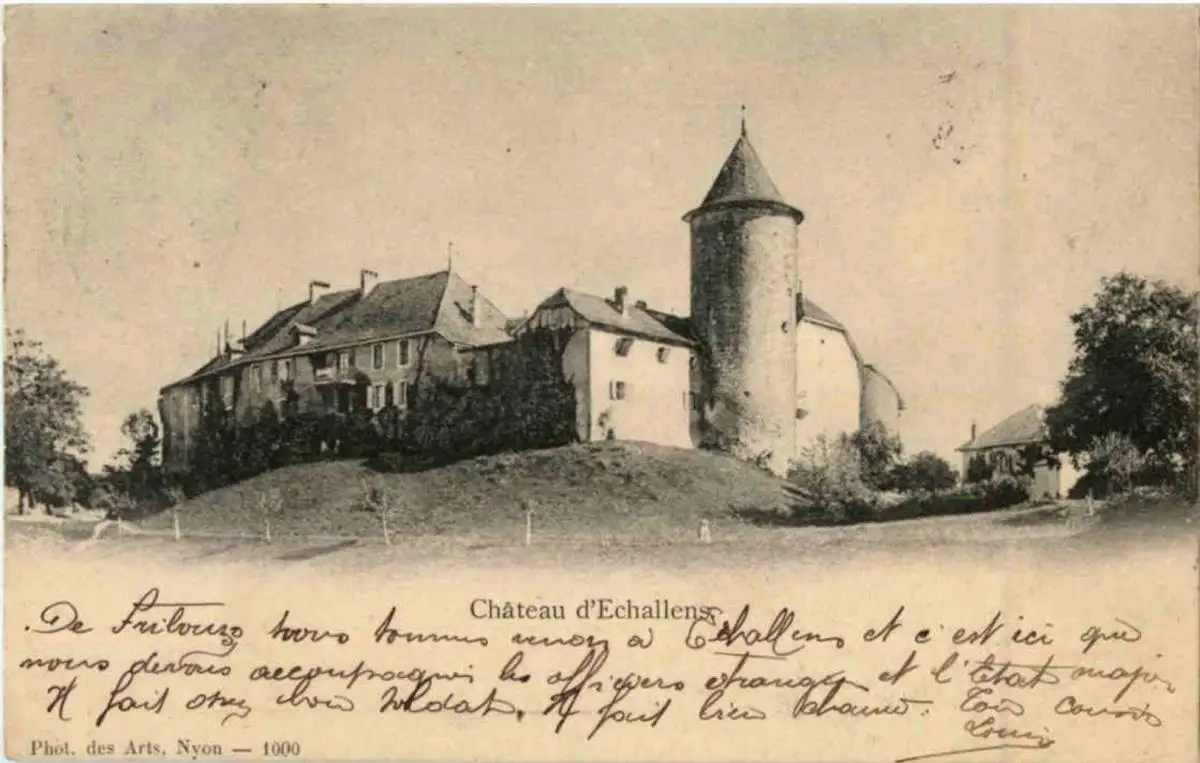 Château d'Echallens
De Fribourg nous sommes venus à Echallens et c'est ici que
nous devons accompagner les officiers étrangers et l'état major
Il fait assez bon soldat, Il fait bien chaud. Ton cousin
Louis
Phot. des Arts, Nyon — 1000